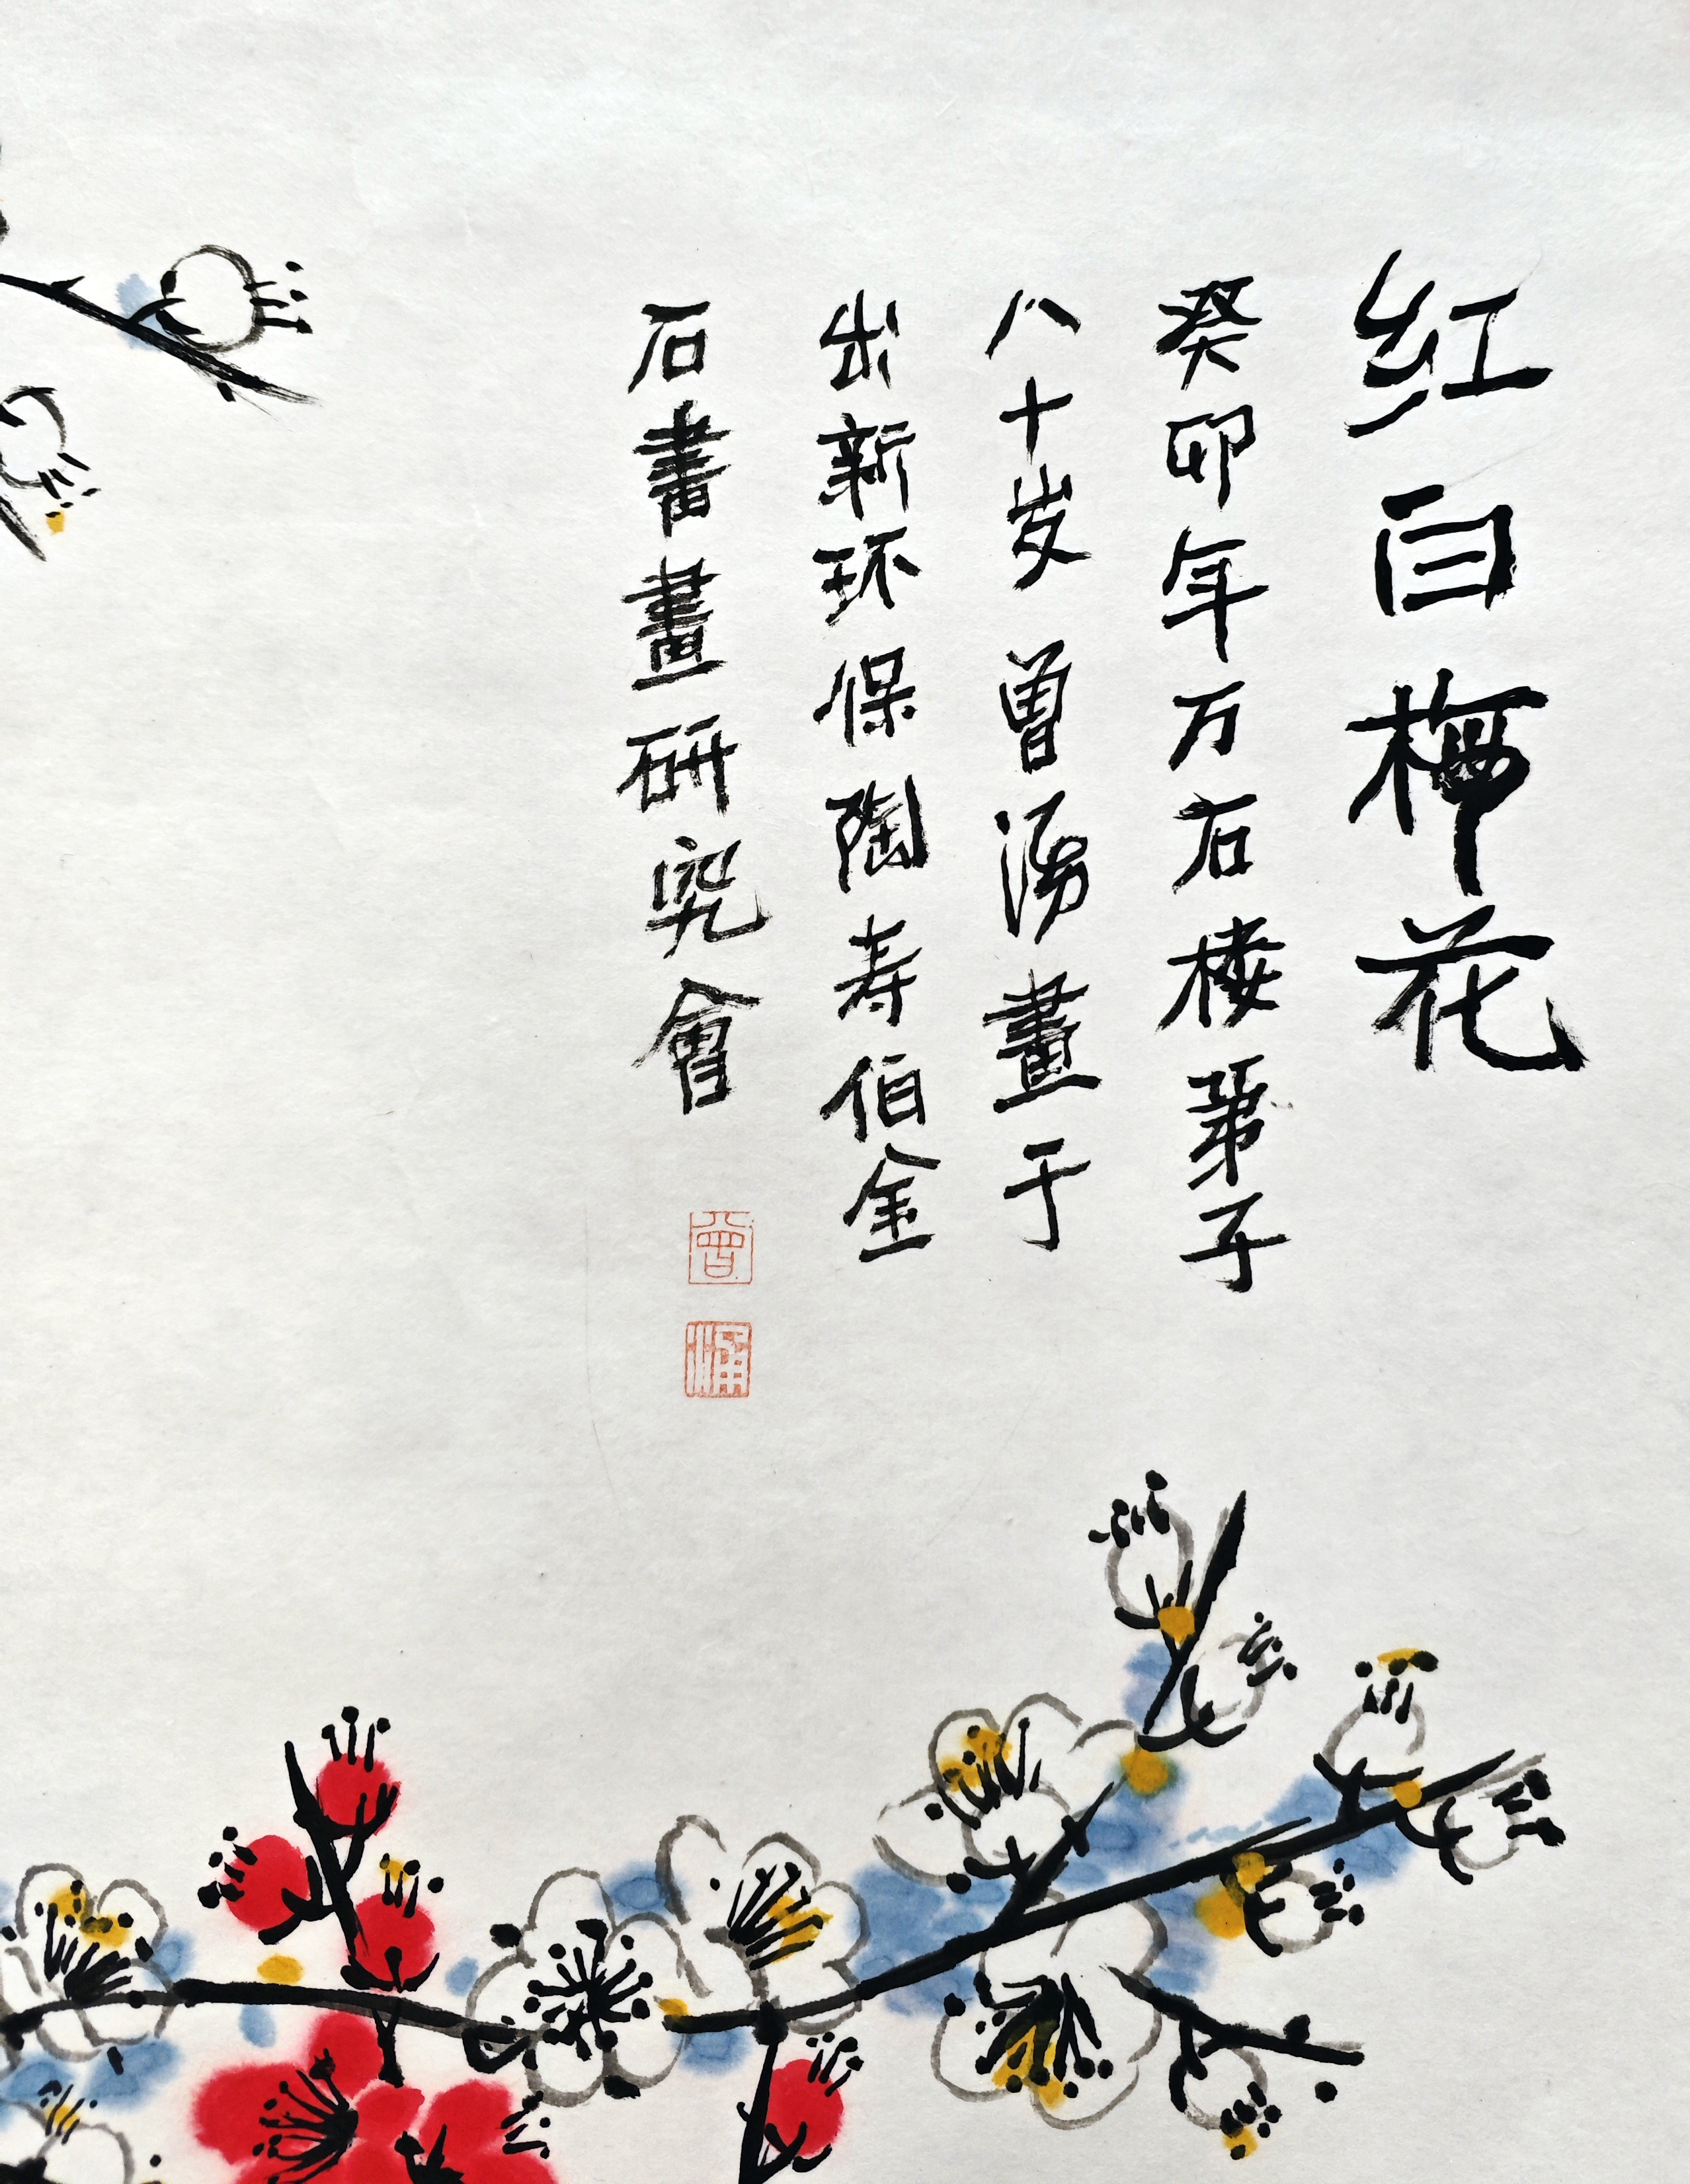 红白梅花
癸卯年万石楼第子
八十岁曾湧畫于
出新环保陶寿伯金
石書畫研究會
曾
湧